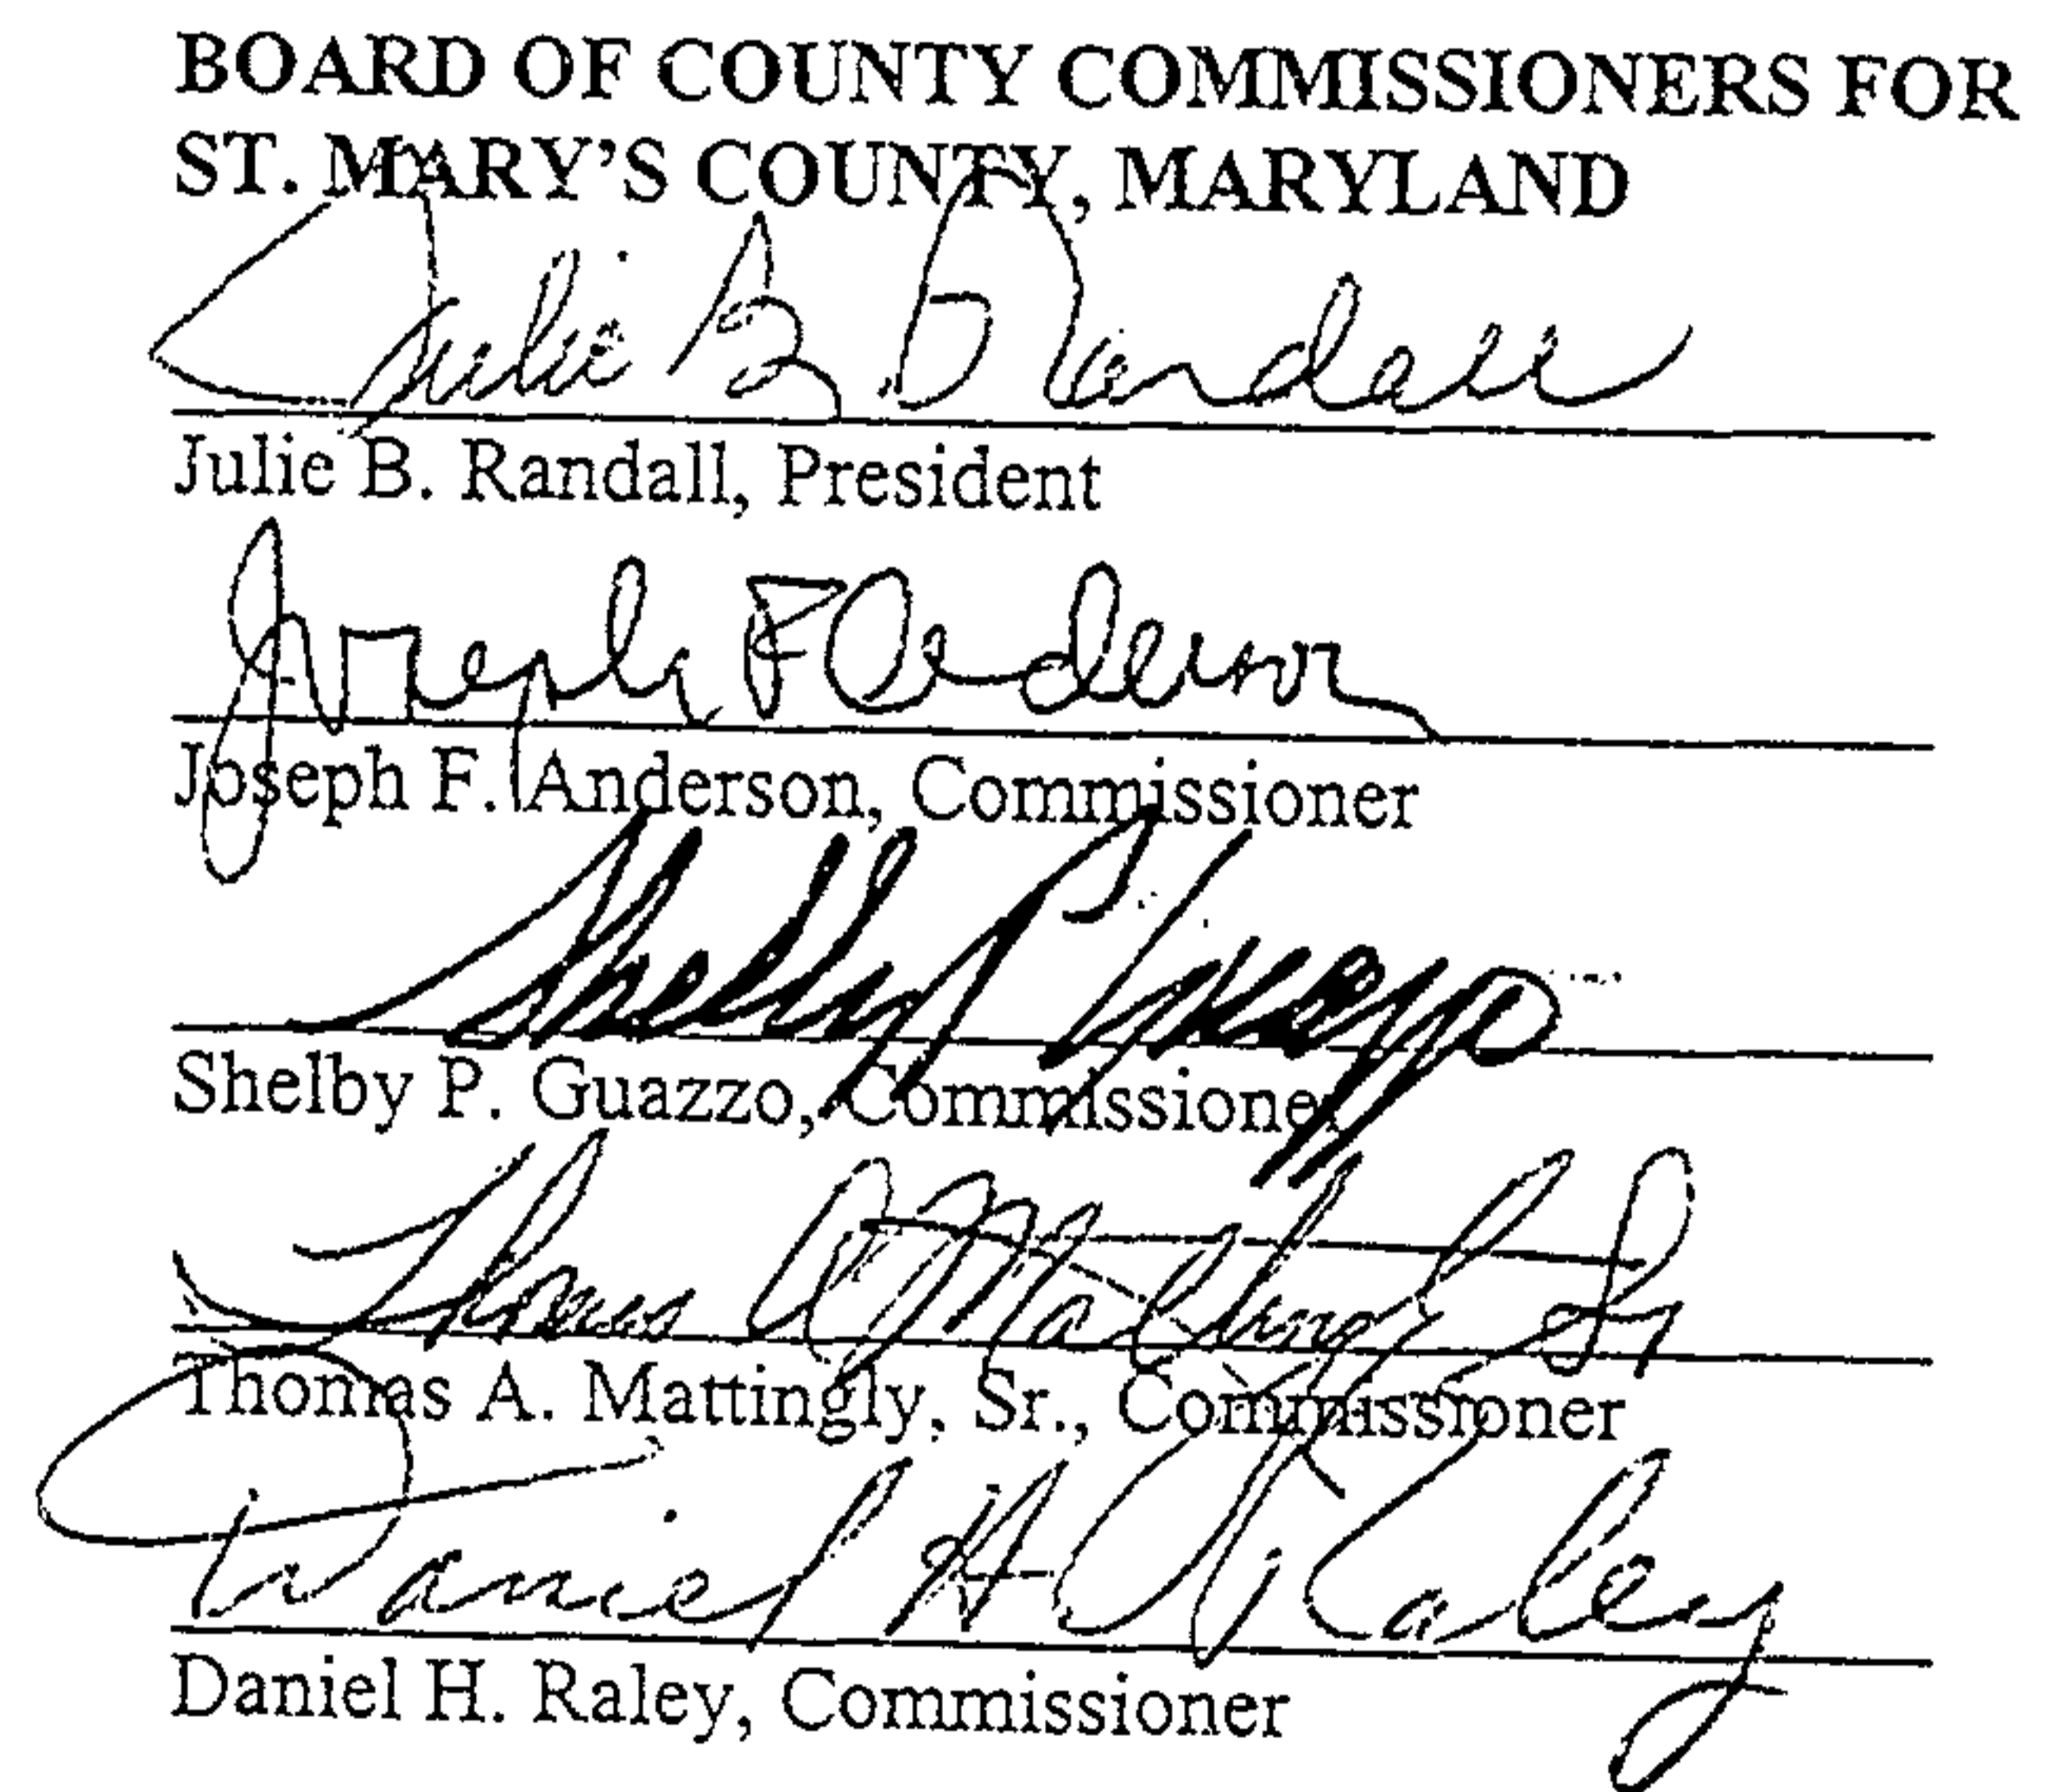 BOARD OF COUNTY COMMISSIONERS FOR
ST. MARY'S COUNTY, MARYLAND
Julie B Randall
Julie B. Randall, President
Joseph F Anderson
Joseph F. Anderson, Commissioner
Shelby P Guazzo
Shelby P. Guazzo, Commissioner
Thomas A Mattingly Sr
Thomas A. Mattingly, Sr., Commissioner
Daniel H Raley
Daniel H. Raley, Commissioner